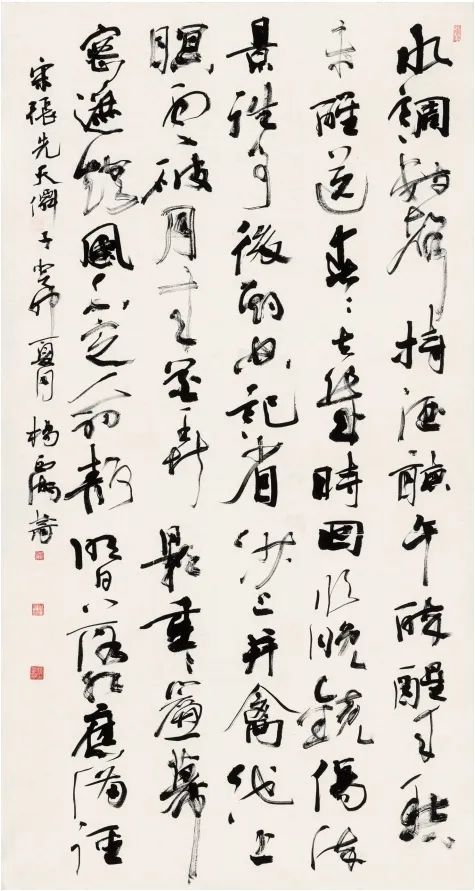 水調數聲持酒聽午醉醒來愁
未醒送春春去幾時回臨晚鏡傷流
景往事後期空記省沙上并禽池上
暝雲破月來花弄影重重簾幕
密遮燈風不定人初靜明日落紅應滿徑
宋張先天僊子癸卯夏月楊書